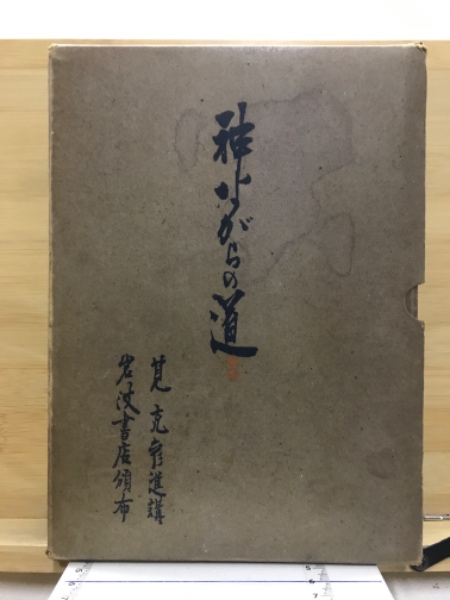 神ながらの道
筧克彦進講
岩波書店頒布